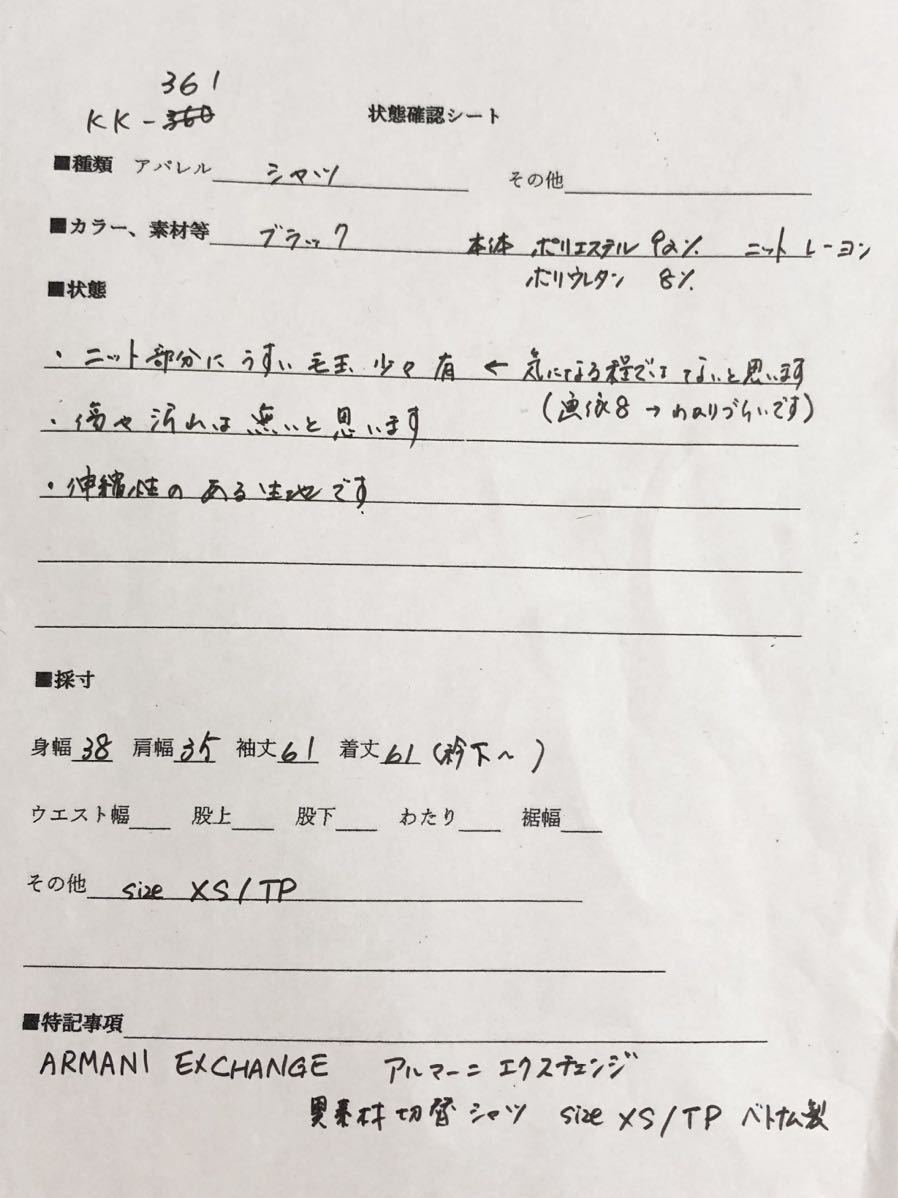 361
KK-360
状態確認シート
■種類 アパレル シャツ その他
■カラー、素材等 ブラック 本体 ポリエステル 92% ニット レーヨン
ポリウレタン 8%
■状態
・ニット部分にうすい毛玉少々有 ← 気になる程ではないと思います
(画像8→わかりづらいです)
・傷や汚れは無いと思います
・伸縮性のある生地です
■採寸
身幅 38 肩幅 35 袖丈 61 着丈 61 (衿下〜)
ウエスト幅 股上 股下 わたり 裾幅
その他 size XS/TP
■特記事項
ARMANI EXCHANGE アルマーニ エクスチェンジ
異素材切替シャツ size XS/TP ベトナム製